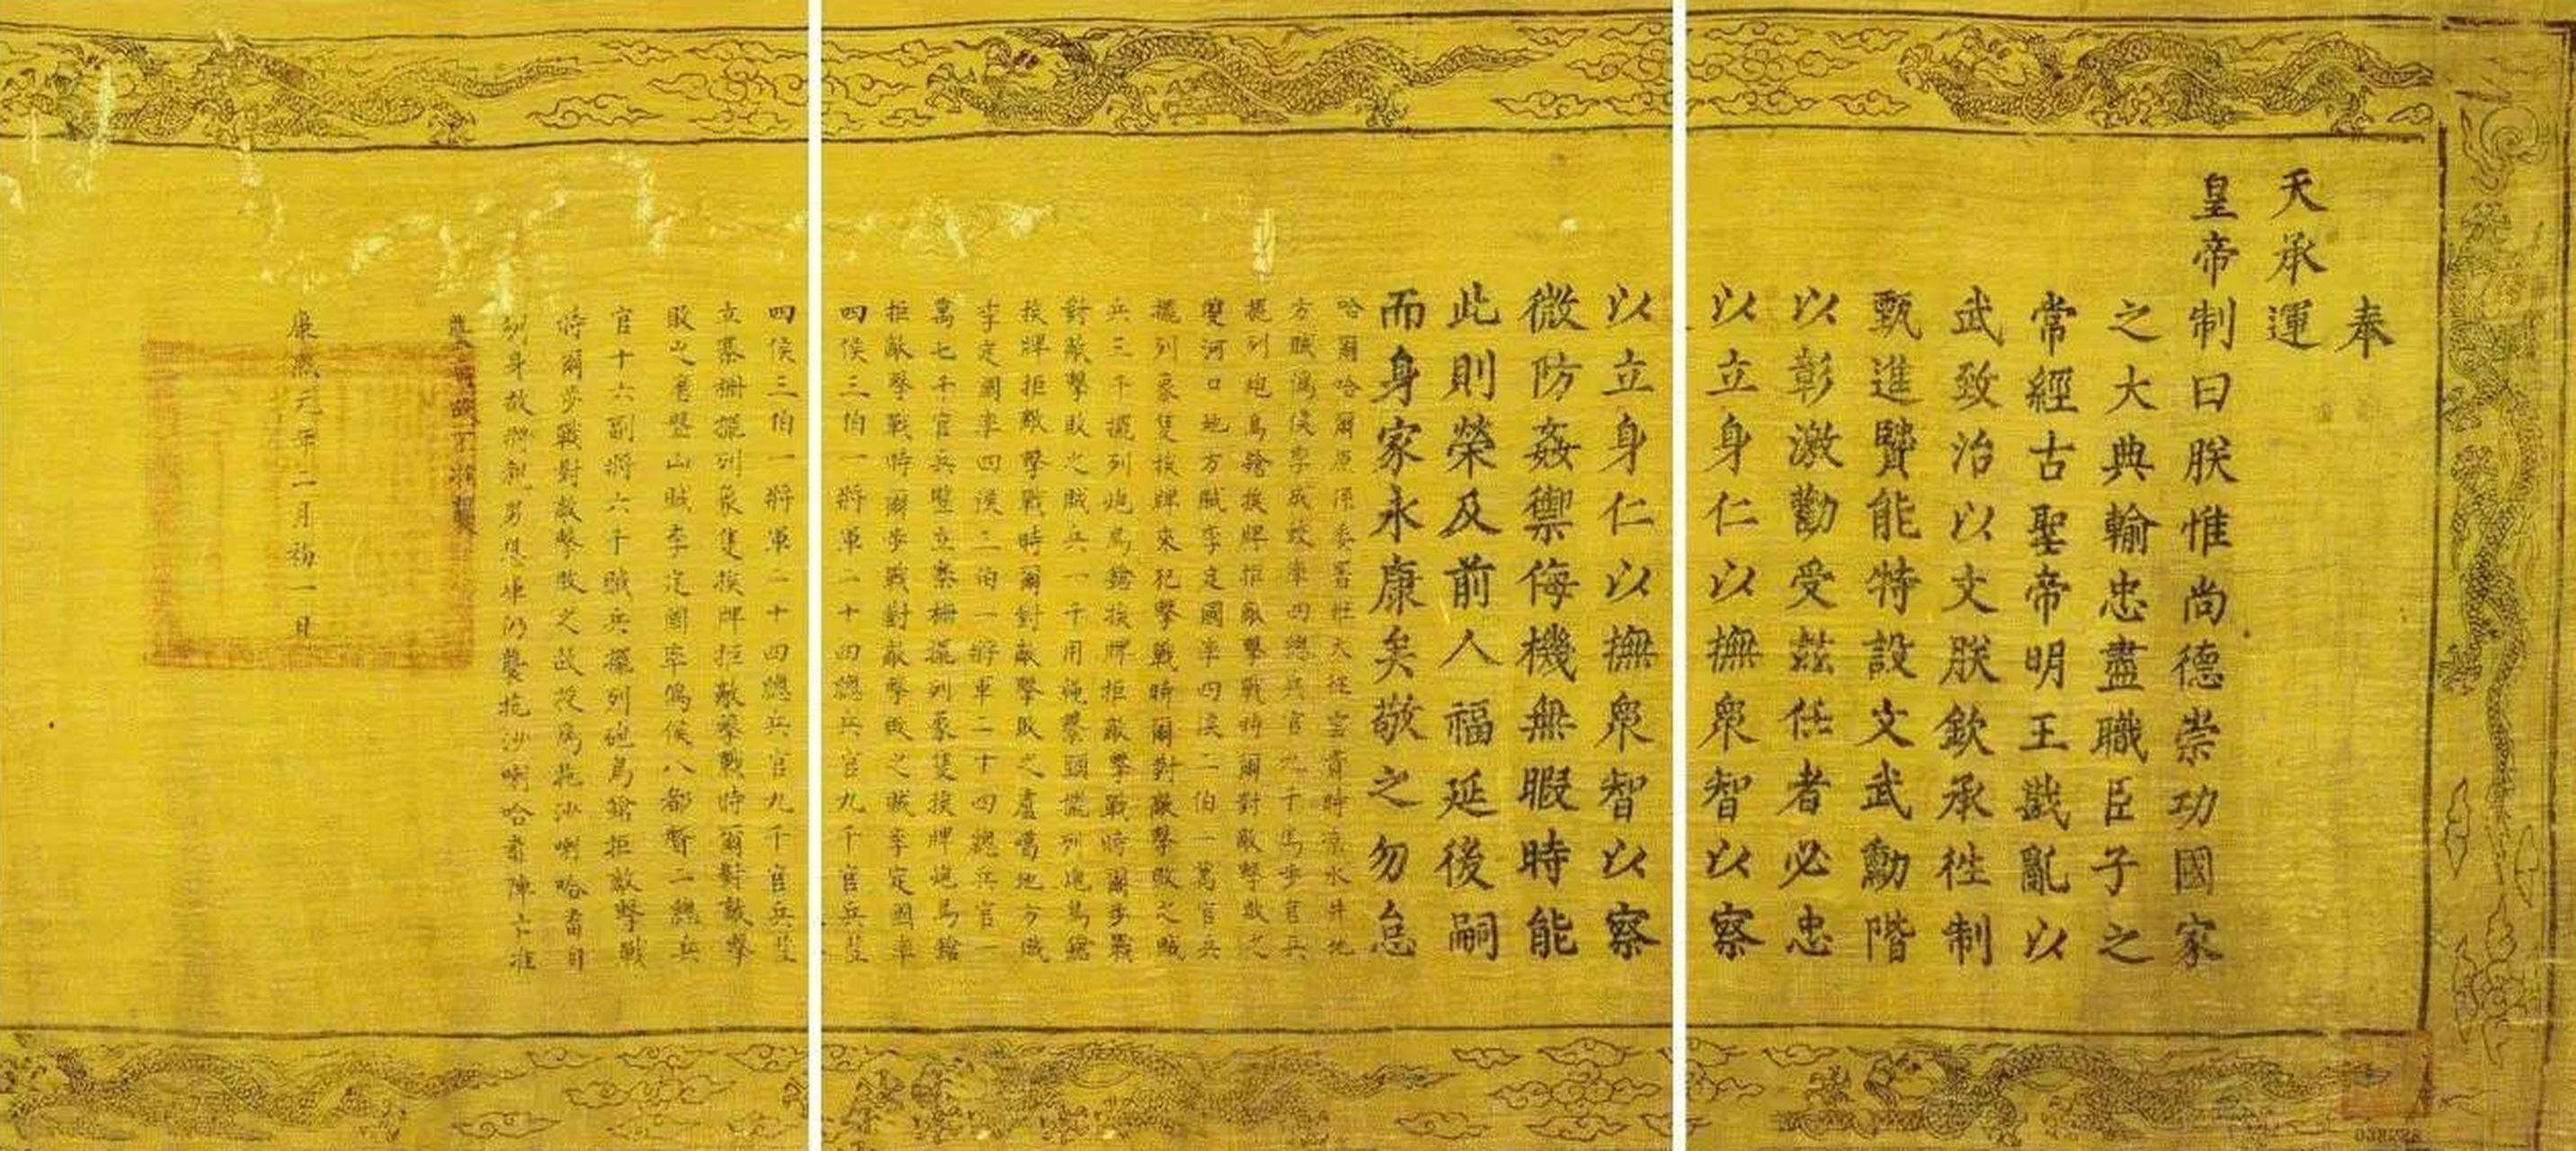 奉
天承運
皇帝制曰朕惟尚德崇功國家
之大典輸忠盡職臣子之
常經古聖帝明王戡亂以
武致治以文朕欽承往制
甄進賢能特設文武勳階
以彰激勸受茲任者必忠
以立身仁以撫衆智以察
以立身仁以撫衆智以察
微防姦禦侮機無暇時能
此則榮及前人福延後嗣
而身家永康矣敬之勿怠
哈爾哈爾原係委署壯大往雲貴時凉水井地
方賊僞侯李成蛟率四總兵官九千馬步官兵
擺列砲鳥鎗挨牌拒敵擊戰時爾對敵擊敗之
雙河口地方賊李定國率四侯二伯一萬官兵
擺列象隻挨牌來犯擊戰時爾對敵擊敗之賊
兵三千擺列砲鳥鎗挨牌拒敵擊戰時爾步戰
對敵擊敗之賊兵一千用繩攀頭擺列砲鳥鎗
挨牌拒敵擊戰時爾對敵擊敗之盧噶地方賊
李定國率四侯三伯一將軍二十四總兵官一
萬七千官兵豎立寨柵擺列象隻挨牌砲鳥鎗
拒敵擊戰時爾步戰對敵擊敗之賊李定國率
四侯三伯一將軍二十四總兵官九千官兵豎
四侯三伯一將軍二十四總兵官九千官兵豎
立寨柵擺列象隻挨牌拒敵擊戰時爾對敵擊
敗之磨盤山賊李定國率僞侯八都督二總兵
官十六副將六千賊兵擺列砲鳥鎗拒敵擊戰
時爾步戰對敵擊敗之故授爲拖沙喇哈番自
身故將親男思庫仍襲拖沙喇哈番陣亡准
康熙元年二月初一日